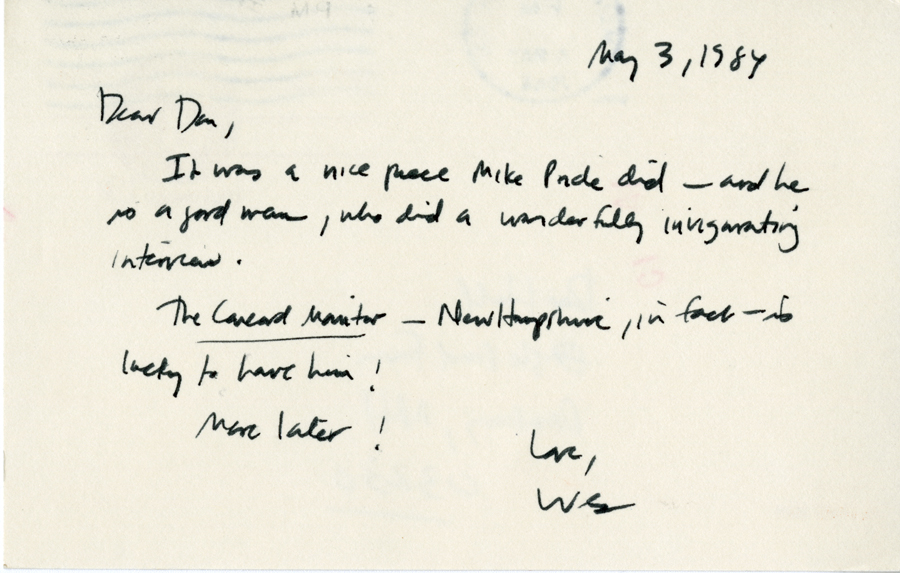 May 3, 1984
Dear Dan,
It was a nice piece Mike Pride did – and he
is a good man, who did a wonderfully invigorating
interview.
The Concord Monitor – New Hampshire, in fact – is
lucky to have him!
More later!
Love,
Wes